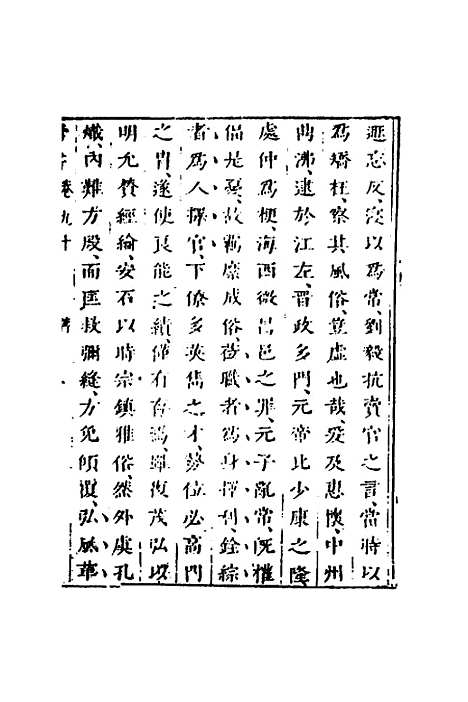 遯忘反、寖以爲常、劉毅抗賣官之言、當時以
爲矯枉、察其風俗、豈虛也哉、爰及惠懷、中州
鼎沸、逮於江左、晉政多門、元帝比少康之隆
處仲爲梗、海西微昌邑之罪、元子亂常、旣權
偪是憂、故羈縻成俗、莅職者爲身擇利、銓綜
者爲人擇官、下僚多英儁之才、勢位必高門
之冑、遂使良能之績、僅有存焉、雖復茂弘以
明允贊經綸、安石以時宗鎮雅俗、然外虞孔
熾、內難方殷、而匡救彌縫、方免傾覆、弘風革
晉書卷九十